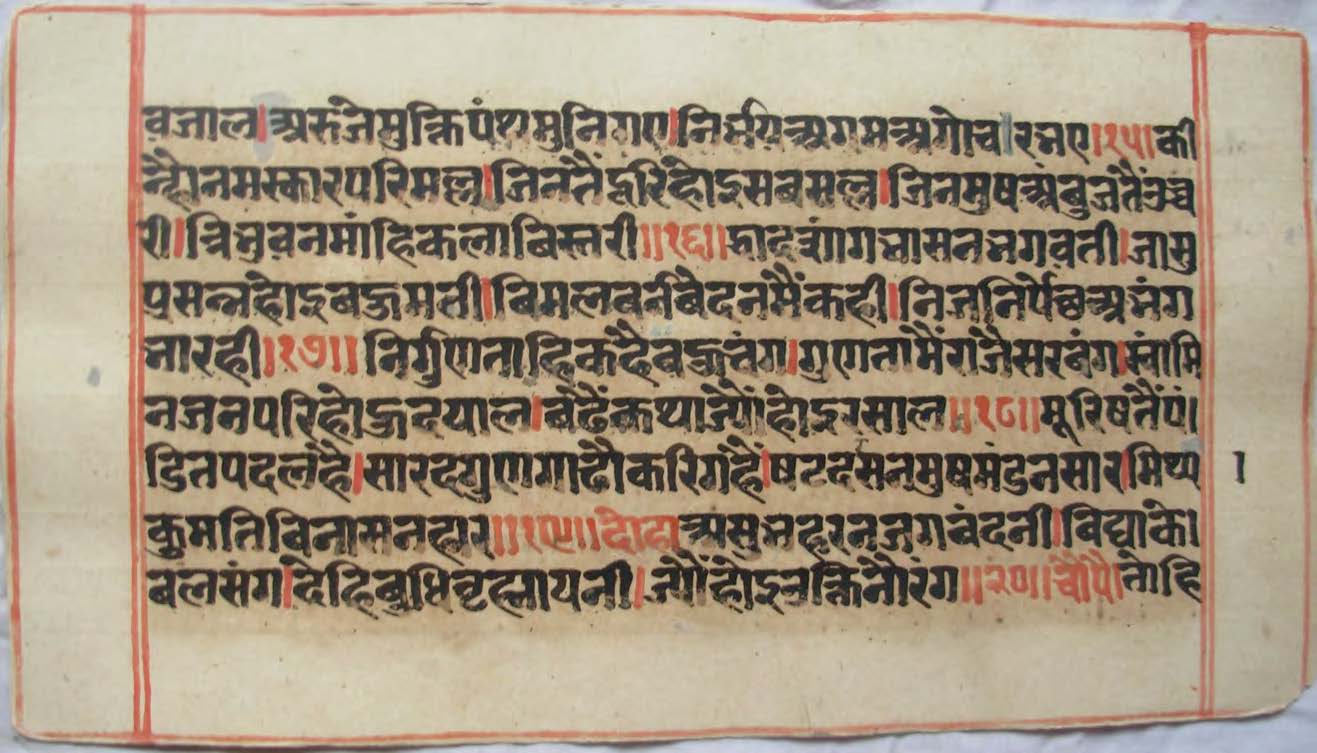 वजाल।अरुजेमुक्तिपंथमुनिगए।निर्भयअगमअगोचरभए।१५।की
न्हौनमस्कारपरिमल्ल।जिनतैंदूरिंहोइसबसल्ल।जिनमुषअंबुजतैंउच्च
री।त्रिभुवनमांहिकलाबिस्तरी॥१६॥द्वादशांगभासनभगवती।जासु
प्रसन्नहोइबहुमती।बिमलबर्नबैदनमैंकही।निजनिर्पेछअभंग
तारही।१७॥निर्गुणताहिकहैबहुचंग।गुणतामैंराजैसरबंग।स्वांमि
नजनपरिहोहुदयाल।बंढैंकथाज्यौंहोइरसाल॥१८॥मूरिषतैंपं।
डितपदलहै।सारदगुणगाढौकरिगहैं।षटदसनमुषमंडनसार।मिथ्य
कुमतिविनासनहार॥१९॥दोहाअसुभहरनजगबंदनी।विद्याके।
बलसंग।देहिबुधिवृह्मायनी।ज्यौंहोइभक्तिनौरंग॥२०॥चौंपै।तोहि